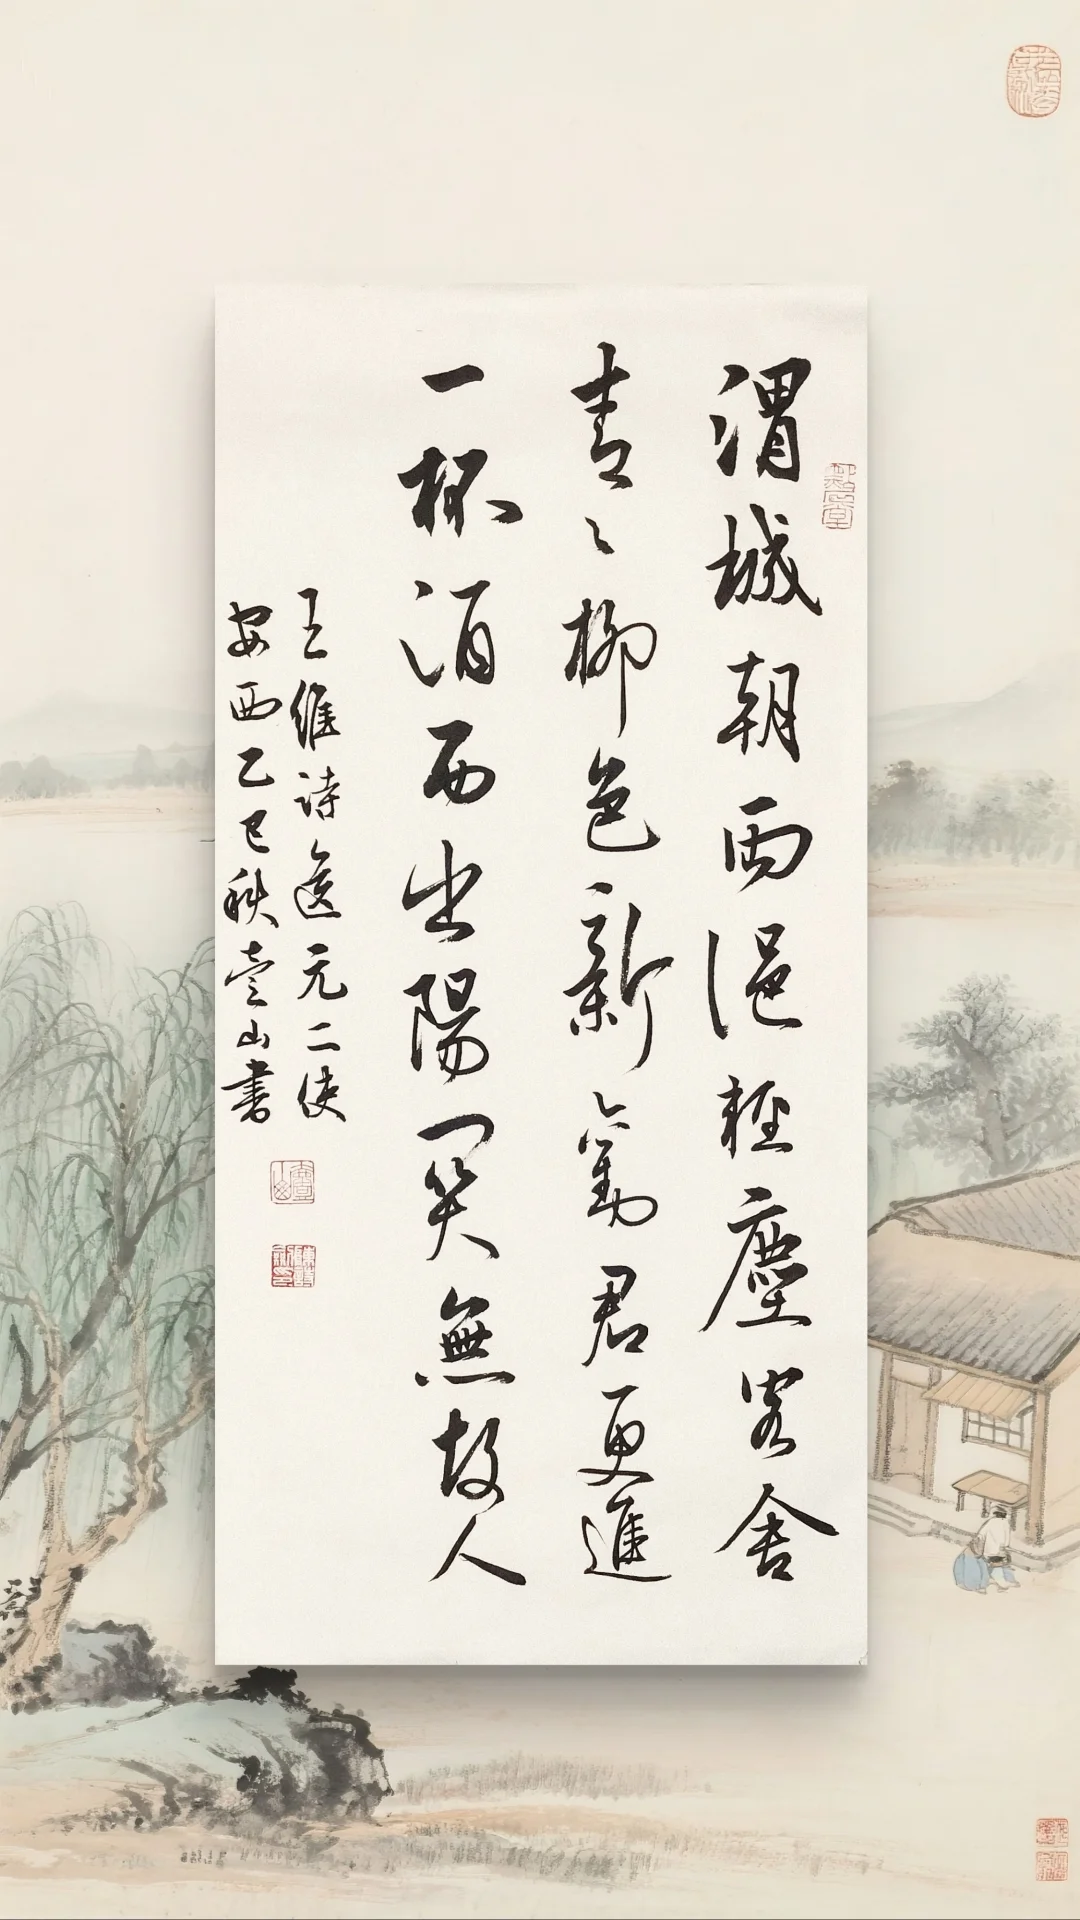 渭城朝雨浥輕塵客舍
青々柳色新勸君更進
一杯酒西出陽關無故人
王維詩送元二使
安西乙巳秋壹山書